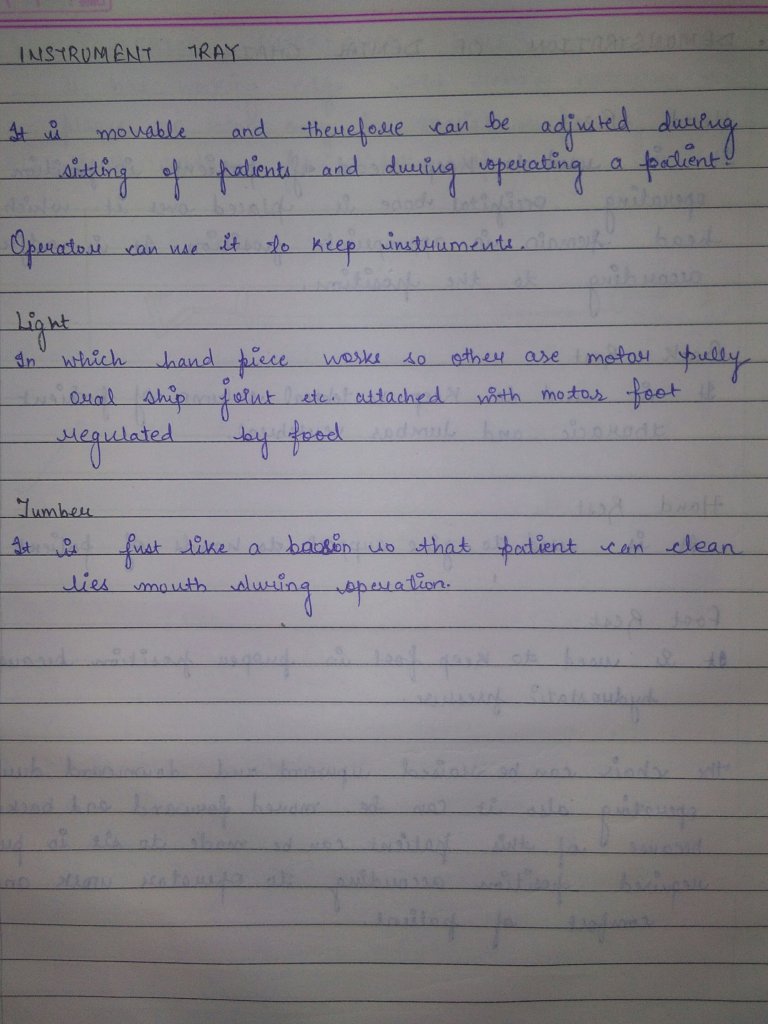 INSTRUMENT TRAY
It is movable and therefore can be adjusted during
sitting of patients and during operating a patient.
Operator can use it to keep instruments.
Light
In which hand piece works so other are motor pully
oral ship joint etc. attached with motor foot
regulated by food
Tumber
It is just like a basin so that patient can clean
lies mouth during operation.